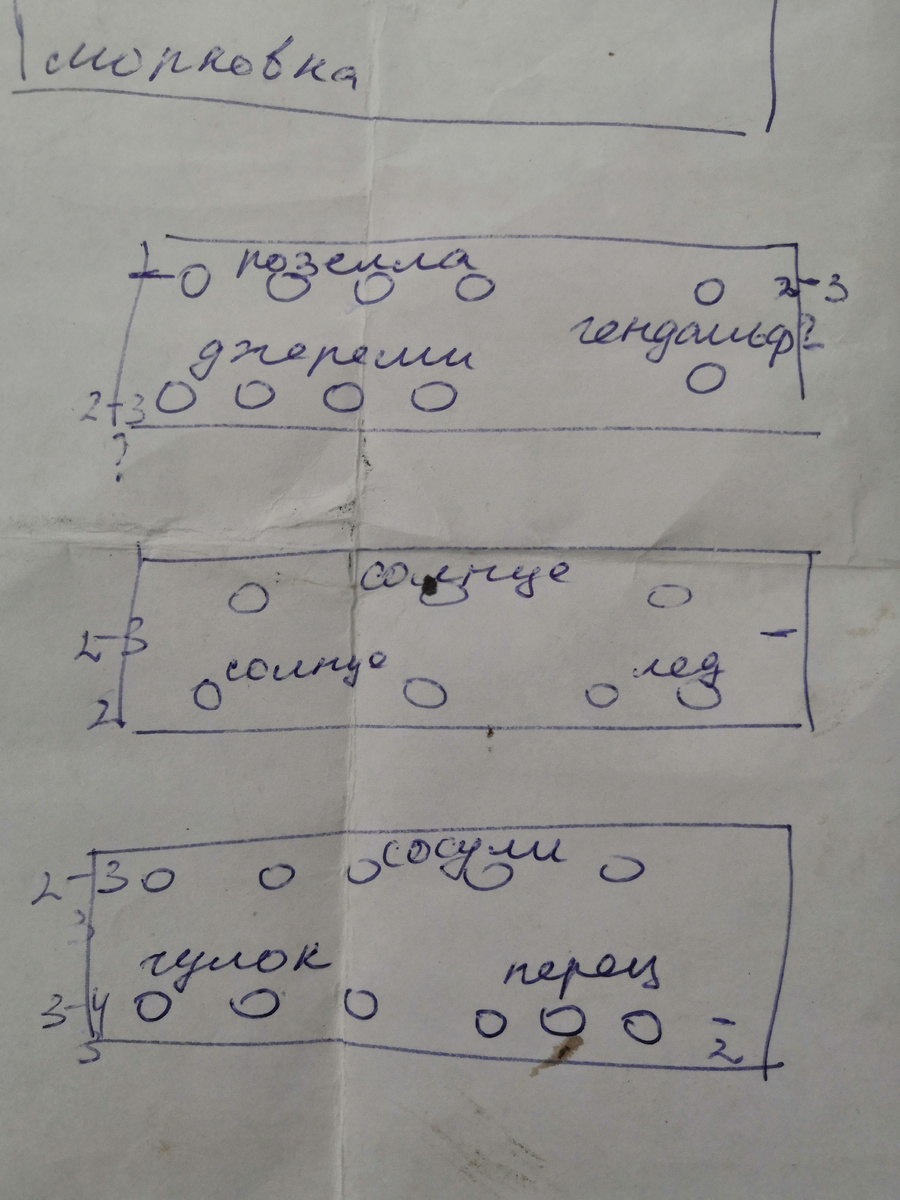 морковка
розелла
2-3
гендальф?
джереми
2-3
?
солнце
2-3
солнце лед
2
сосули
2-3
3
чулок перец
3-4
2
3